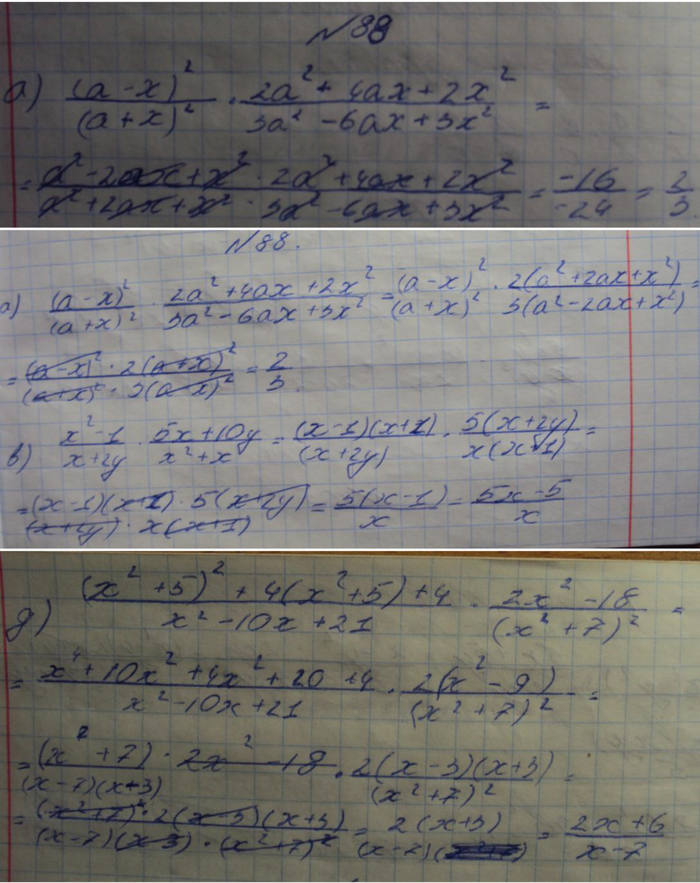 №88
а) (a-x)²/(a+x)² · (2a²+4ax+2x²)/(3a²-6ax+3x²) =
= (a²-2ax+x² · 2a²+4ax+2x²)/(a²+2ax+x² · 3a²-6ax+3x²) = -16/-24 = 2/3
№88.
а) (a-x)²/(a+x)² · (2a²+4ax+2x²)/(3a²-6ax+3x²) = (a-x)²/(a+x)² · 2(a²+2ax+x²)/3(a²-2ax+x²) =
= ((a-x)² · 2(a+x)²)/((a+x)² · 3(a-x)²) = 2/3
в) (x²-1)/(x+2y) · (5x+10y)/(x²+x) = (x-1)(x+1)/(x+2y) · 5(x+2y)/x(x+1) =
= ((x-1)(x+1) · 5(x+2y))/((x+2y) · x(x+1)) = 5(x-1)/x = (5x-5)/x
д) ((x²+5)²+4(x²+5)+4)/(x²-10x+21) · (2x²-18)/(x²+7)² =
= (x⁴+10x²+4x²+20+4)/(x²-10x+21) · 2(x²-9)/(x²+7)² =
= (x²+7) · 2x²-18/(x-7)(x+3) · 2(x-3)(x+3)/(x²+7)² =
= ((x²+7)² · 2(x-3)(x+3))/((x-7)(x-3) · (x²+7)²) = 2(x+3)/(x-7) = (2x+6)/(x-7)